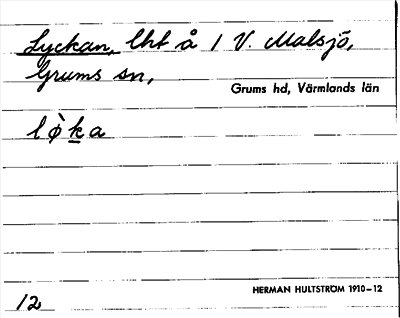 Lyckan, lht å 1 V. Malsjö,
Grums sn,
Grums hd, Värmlands län
l ø̀ k a
HERMAN HULTSTRÖM 1910–12
12